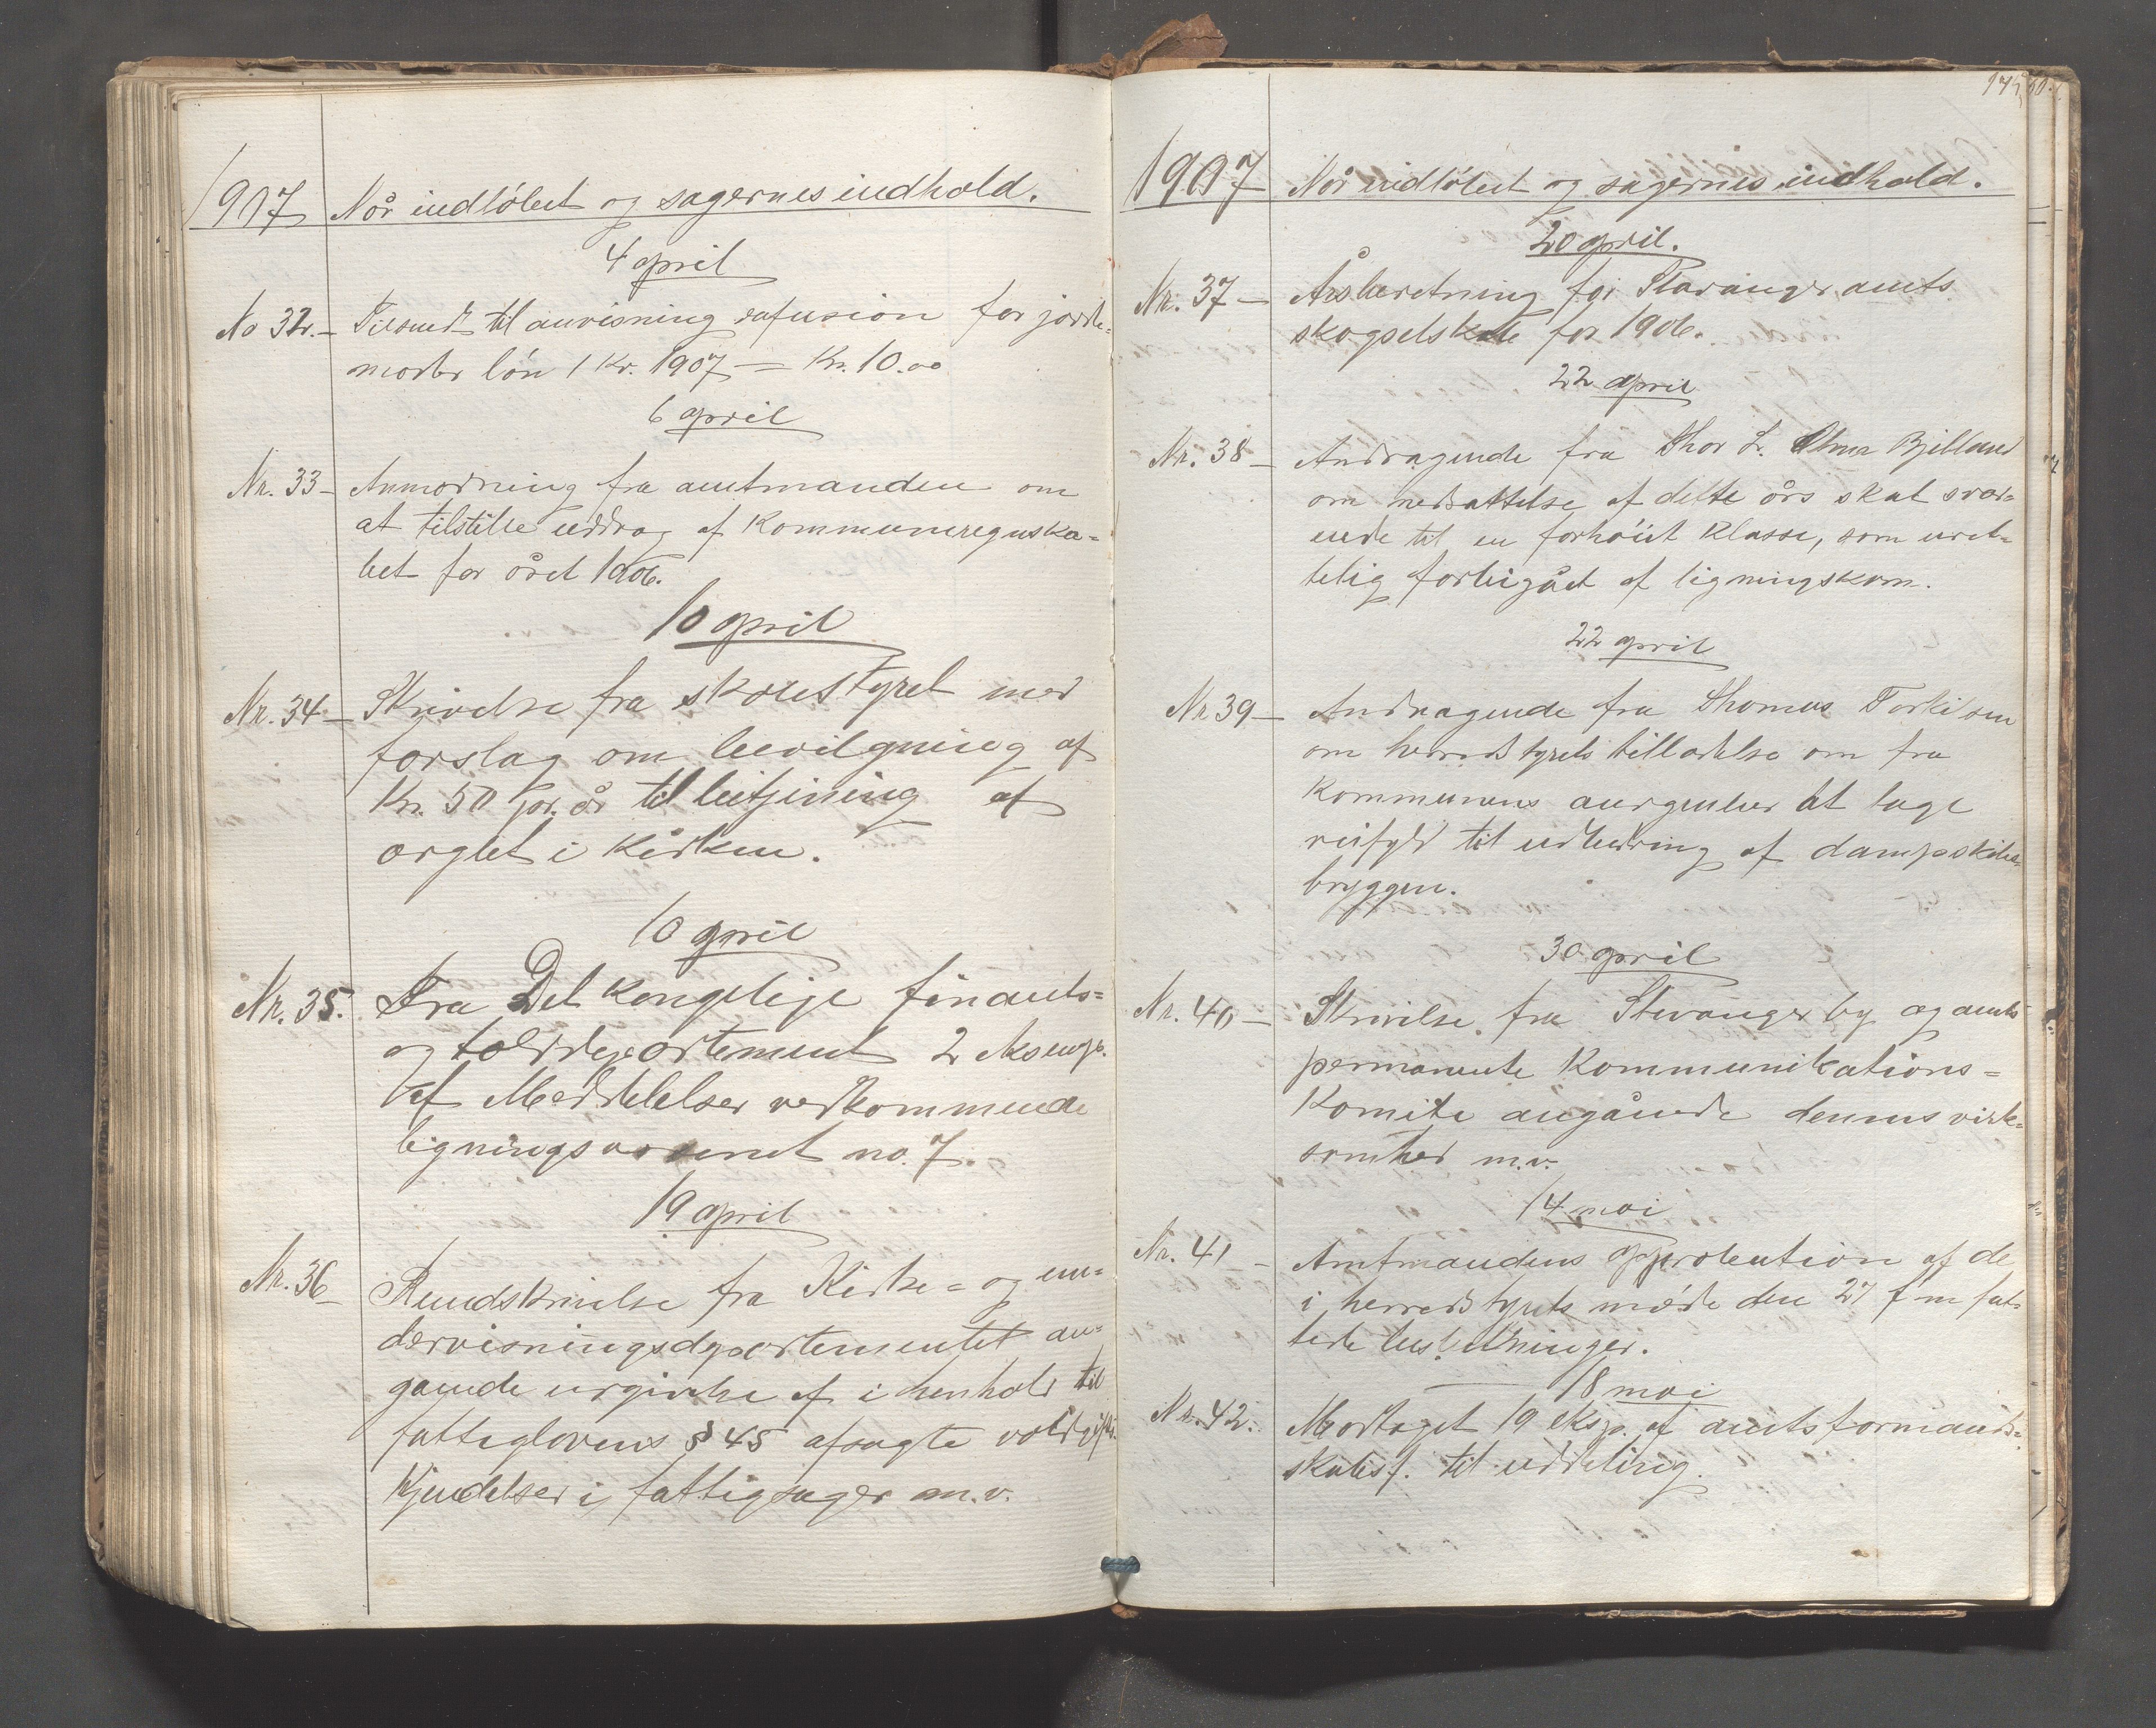 1907 Når indløbet og sagernes indhold.
4 april
No 32. – Tilsendt til anvisning refusion for jorde-
moder løn 1 Kv. 1907 – = Kr. 10.00
6 april
Nr. 33 – Anmodning fra amtmanden om
at tilstille uddrag af Kommuneregnska-
bet for året 1906.
10 april
Nr. 34 – Skrivelse fra skolestyret med
forslag om bevilgning af
Kr. 50 pr. år til betjening af
orglet i kirken.
10 april
Nr. 35. Fra Det kongelige finants-
og tolddepartement 2 eksempl.
af Meddelelser vedkommende
ligningsvæsenet no. 7.
19 april
Nr. 36 – Rundskrivelse fra Kirke- og un-
dervisningsdepartementet an-
gaaende udgivelse af i henhold til
fattiglovens § 45 afsagte voldgifts-
Kjendelser i fattigsager m.v.
1907 Når indløbet og sagernes indhold.
20 april.
Nr. 37 – Årsberetning for Stavanger amts
skogselskab for 1906.
22 april
Nr. 38 – Andragende fra Thor L. Bjelland
om nedsættelse af dette års skat svar-
ende til en forhøiet klasse, som uret-
telig forbigået af ligningskom.
22 april
Nr 39 – Andragende fra Thomas Torkilsen
om herredstyrets tilladelse om fra
Kommunens at tage
til udbedring af dampskibs-
bryggen.
30 april
Nr. 40 – Skrivelse fra Stavanger by og amts
permanente Kommunikations-
Komite angående dennes virk-
somhed m.v.
14 mai
Nr. 41 – Amtmandens approbation af de
i herredstyrets møde den 27 f m fat-
tede beslutninger.
18 mai
Nr. 42. Modtaget 19 eksp. af amtsformand-
skabsf. til uddeling.